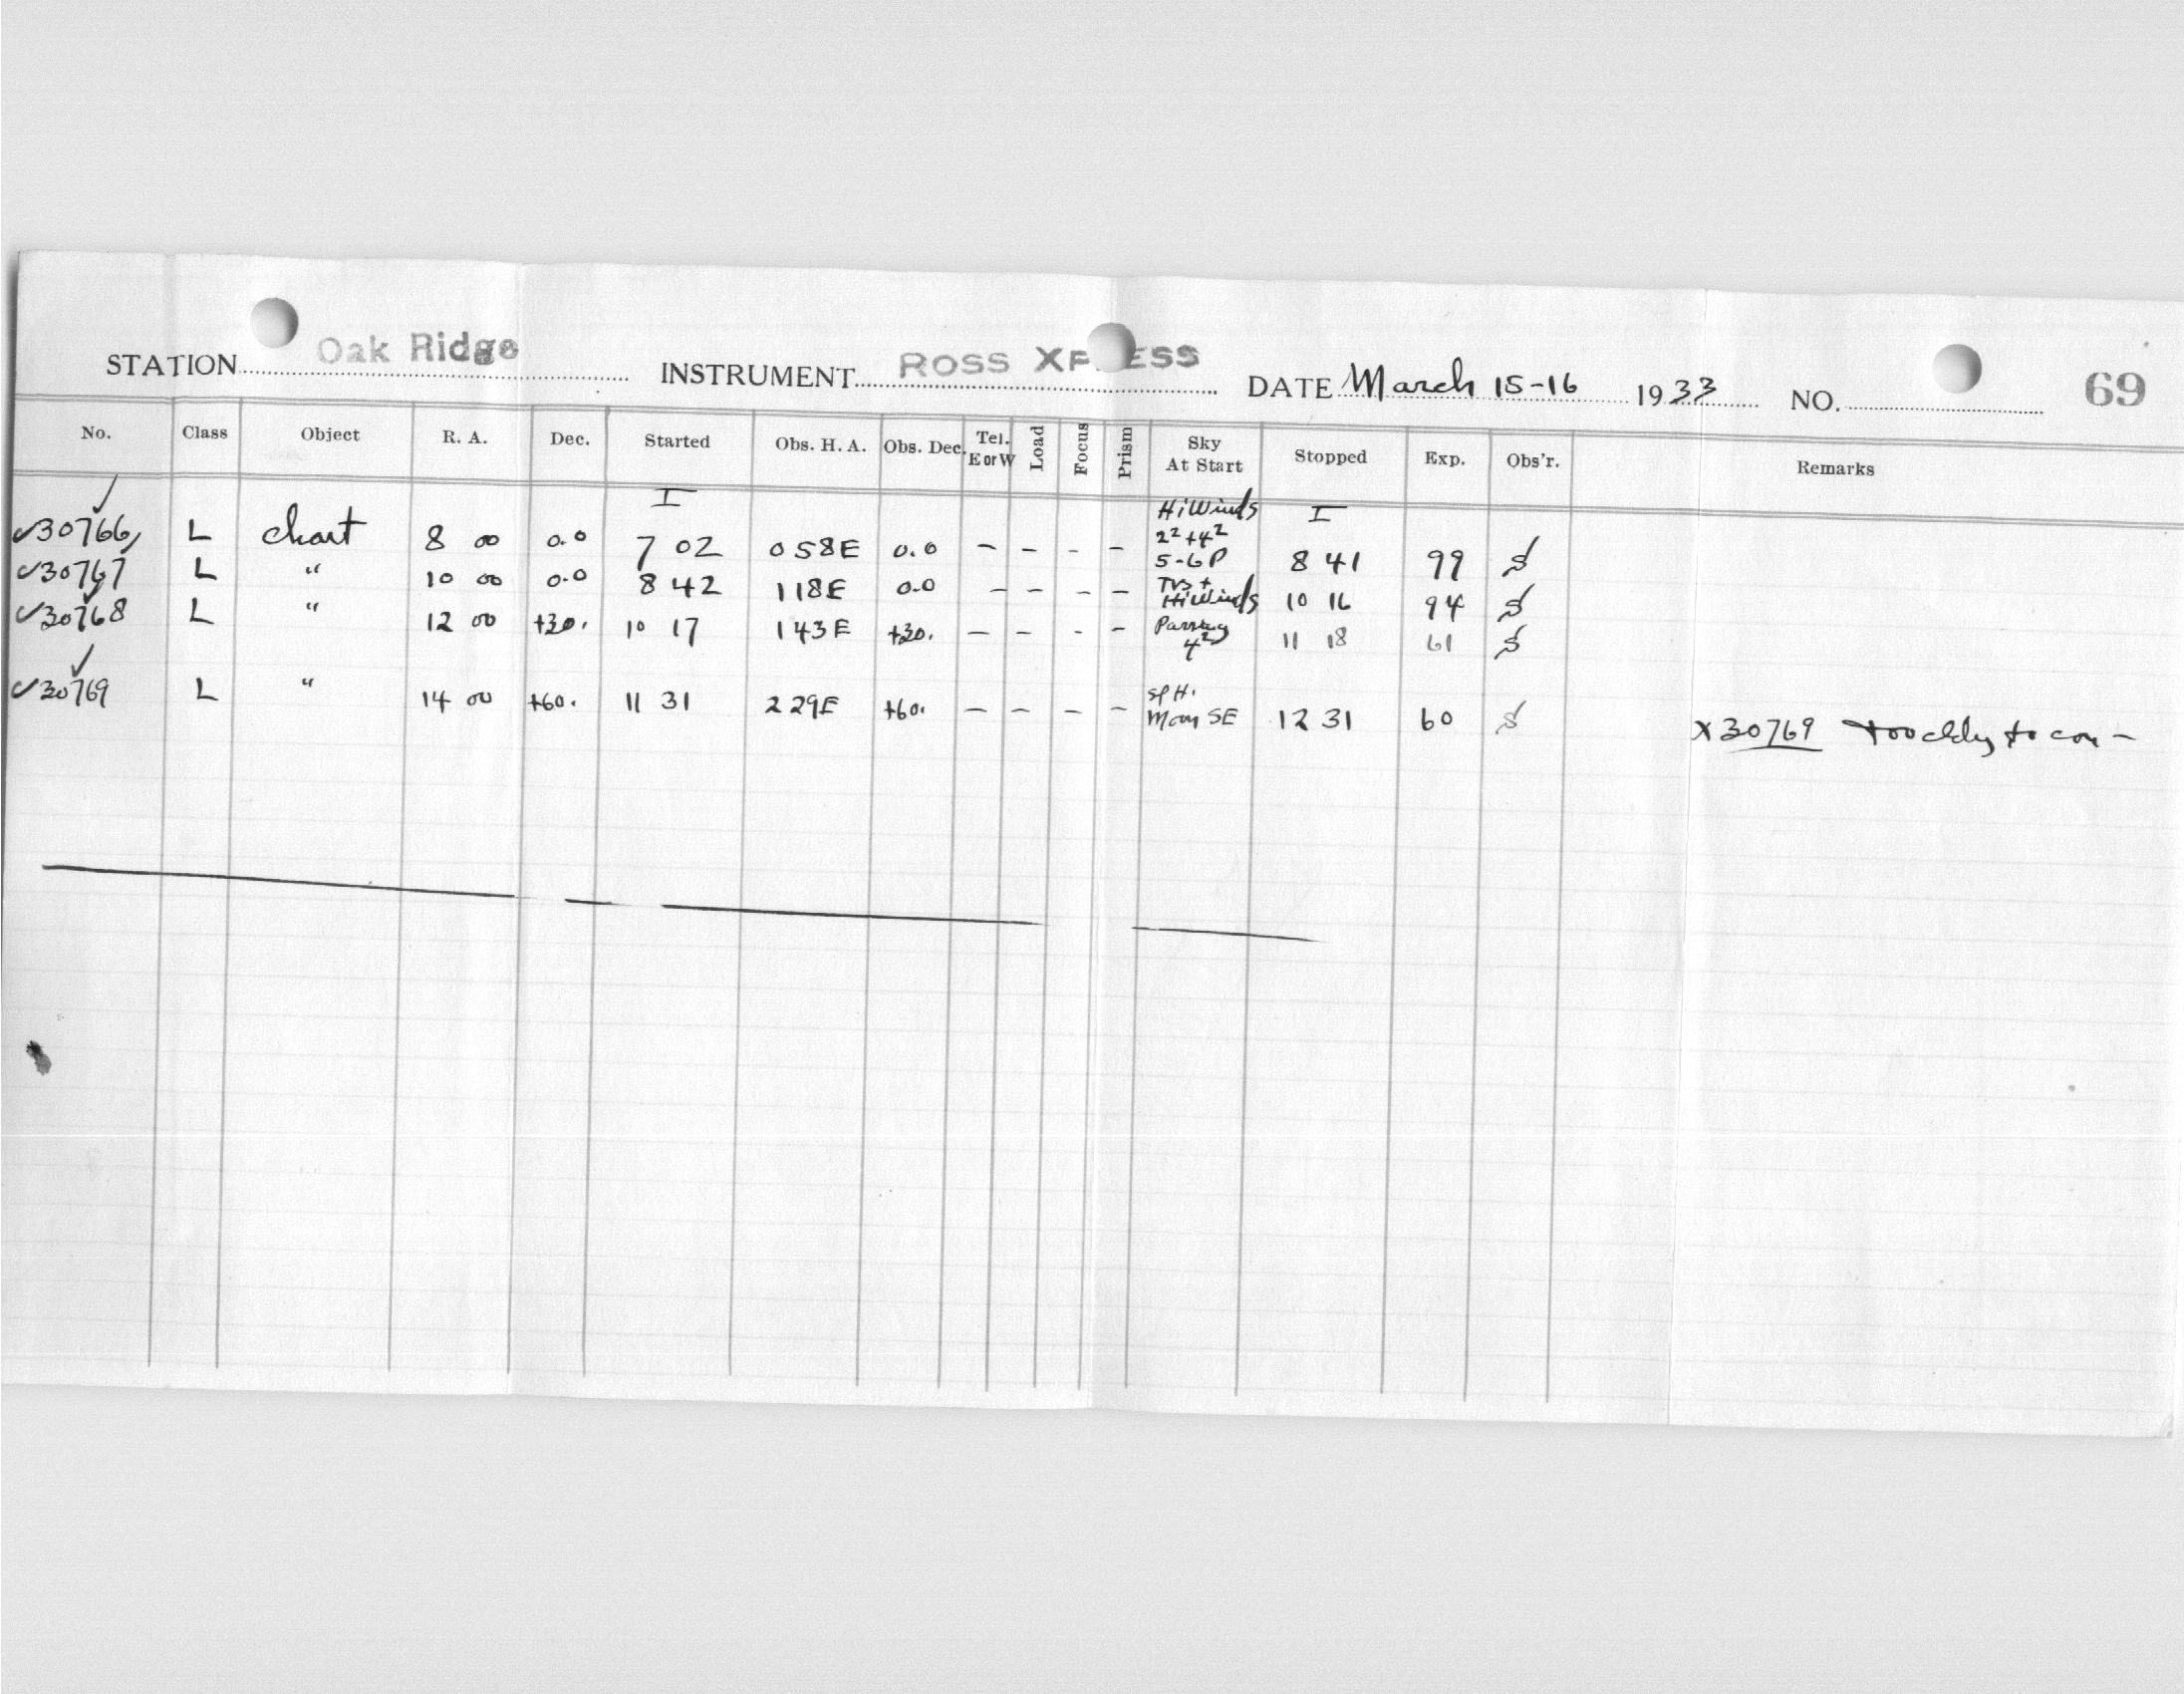 STATION Oak Ridge INSTRUMENT ROSS XP ESS DATE March 15-16 1933 NO. 69
No. Class Object R. A. Dec. Started Obs. H. A. Obs. Dec. Tel. E or W Load Focus Prism Sky At Start Stopped Exp. Obs'r. Remarks
I Hi Winds I
✓30766, L chart 8 00 0.0 7 02 0 58E 0.0 - - - - 2²+4² 5-6P 8 41 99 S
✓30767 L " 10 00 0.0 8 42 1 18E 0.0 - - - - Hi Winds 10 16 94 S
✓30768 L " 12 00 +30. 10 17 1 43E +30. - - - - Passing 4² 11 18 61 S
✓30769 L " 14 00 +60. 11 31 2 29E +60. - - - - Sp H. Moon SE 12 31 60 S
X30769 too cldy to con -